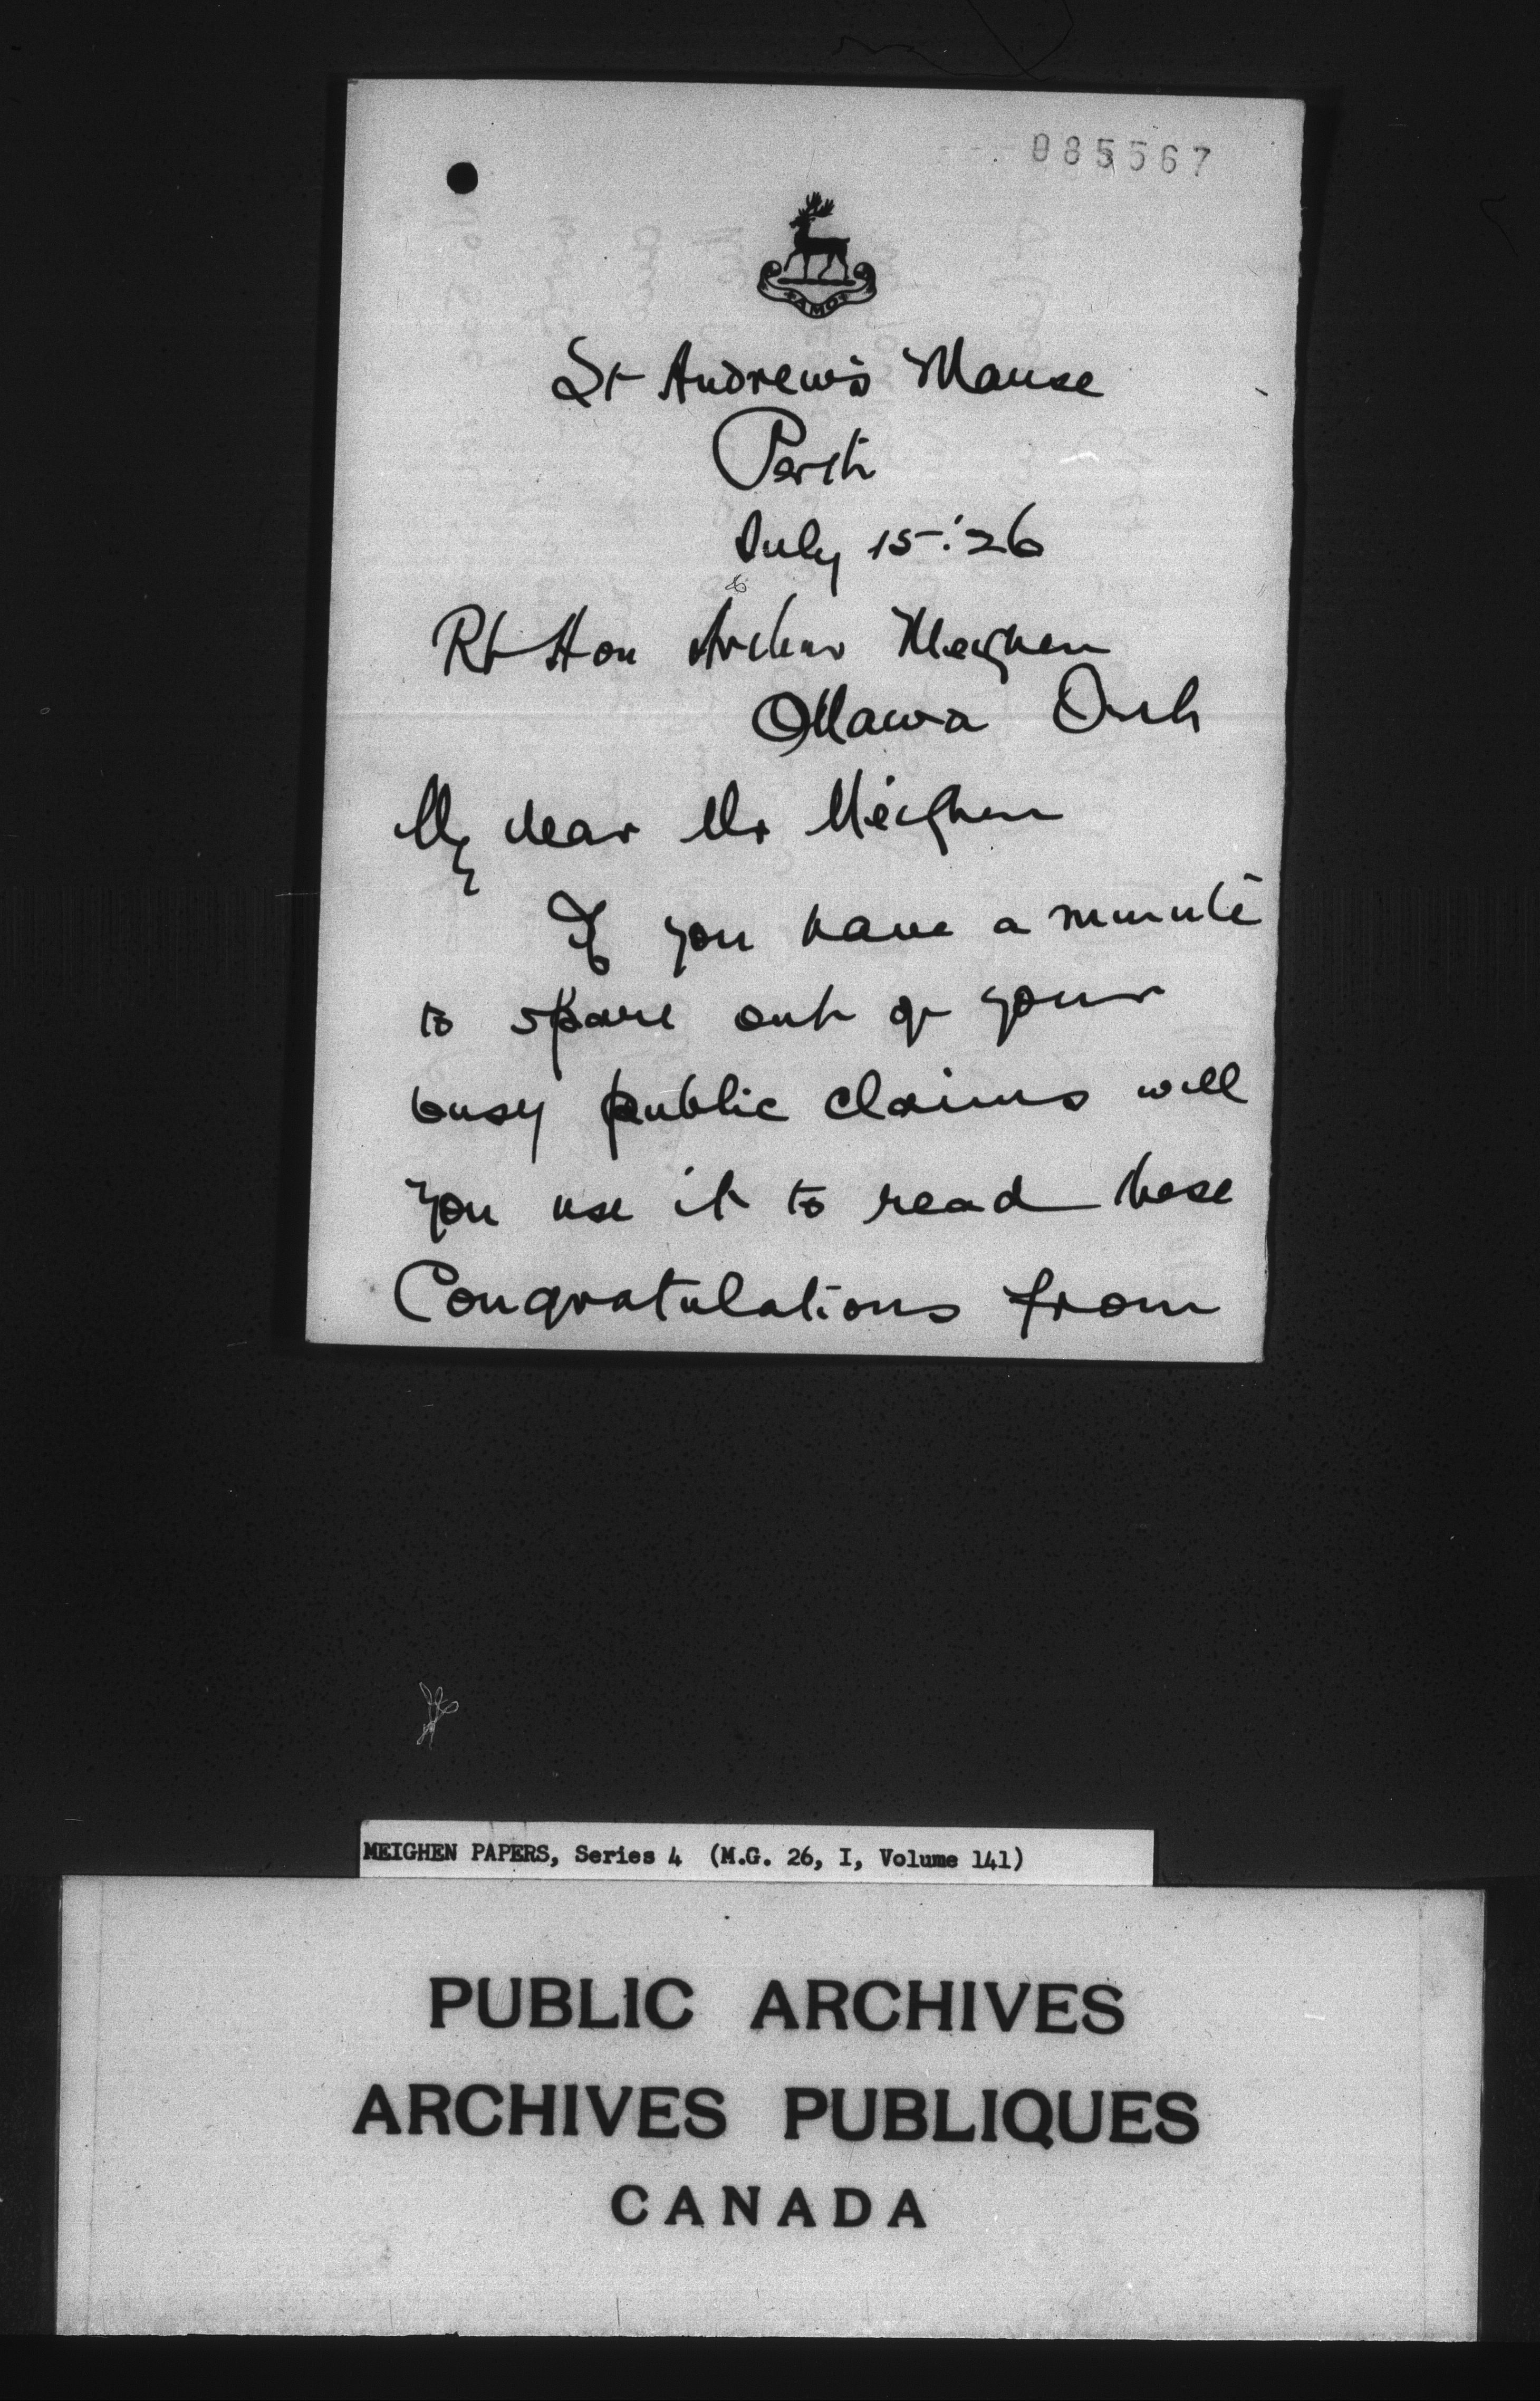 085567
AMO
St Andrew's Manse
Perth
July 15 '26
Rt Hon Arthur Meighen
Ottawa Ont
My dear Mr Meighen
If you have a minute
to spare out of your
busy public claims will
you use it to read these
Congratulations from
MEIGHEN PAPERS, Series 4 (M.G. 26, I, Volume 141)
PUBLIC ARCHIVES
ARCHIVES PUBLIQUES
CANADA